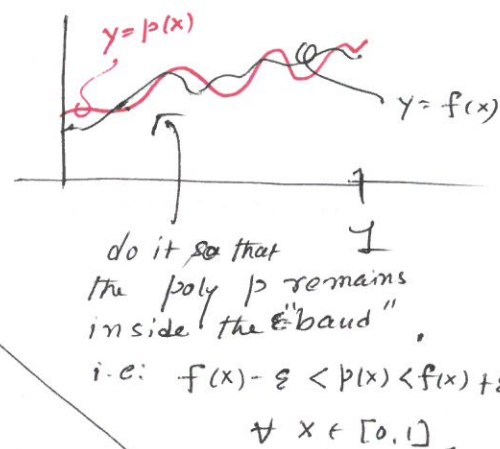 y = p(x)
y = f(x)
1
do it so that
the poly p remains
inside the "ε band".
i.e: f(x) - ε < p(x) < f(x) + ε
∀ x ∈ [0,1]